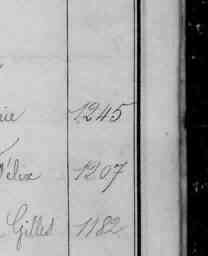 rie 1245
Félix 1207
Gilles 1182